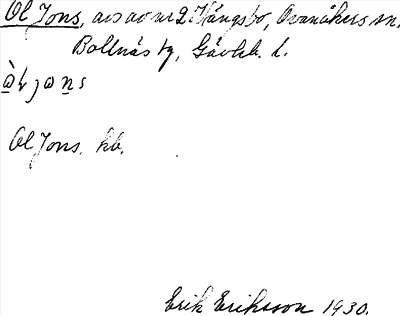 Ol Jons, avs av nr 2 Hängsbo, Ovanåkers sn.
Bollnäs tg, Gävleb. l.
Ol Jons. hb.
Erik Eriksson 1930.